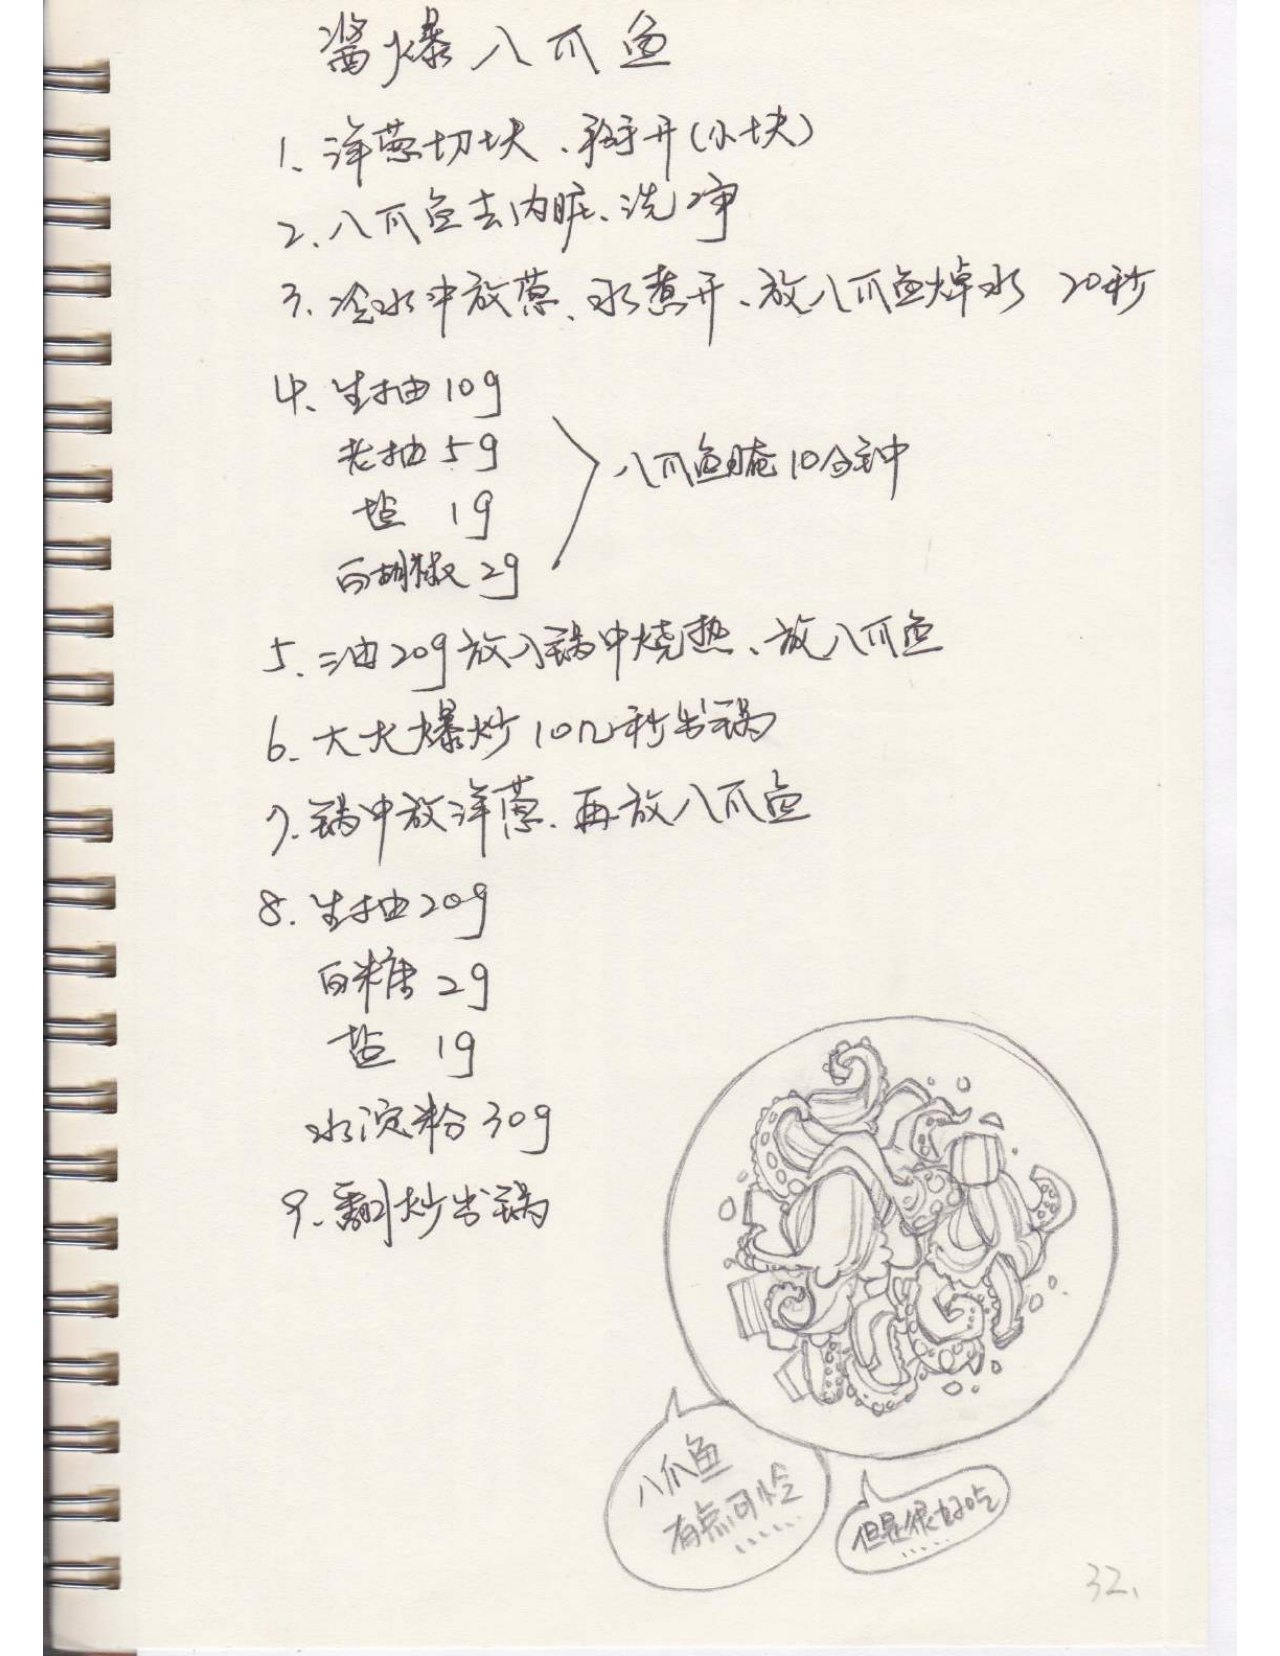 酱爆八爪鱼
1. 洋葱切块、掰开(小块)
2. 八爪鱼去内脏、洗净
3. 冷水中放葱、水煮开、放八爪鱼焯水 20秒
4. 生抽10g
老抽5g
盐 1g
白胡椒2g
八爪鱼腌10分钟
5. 油20g放入锅中烧热、放八爪鱼
6. 大火爆炒10几秒出锅
7. 锅中放洋葱、再放八爪鱼
8. 生抽20g
白糖2g
盐 1g
水淀粉30g
9. 翻炒出锅
八爪鱼
有点可怜
......
但是很好吃
.....
32、